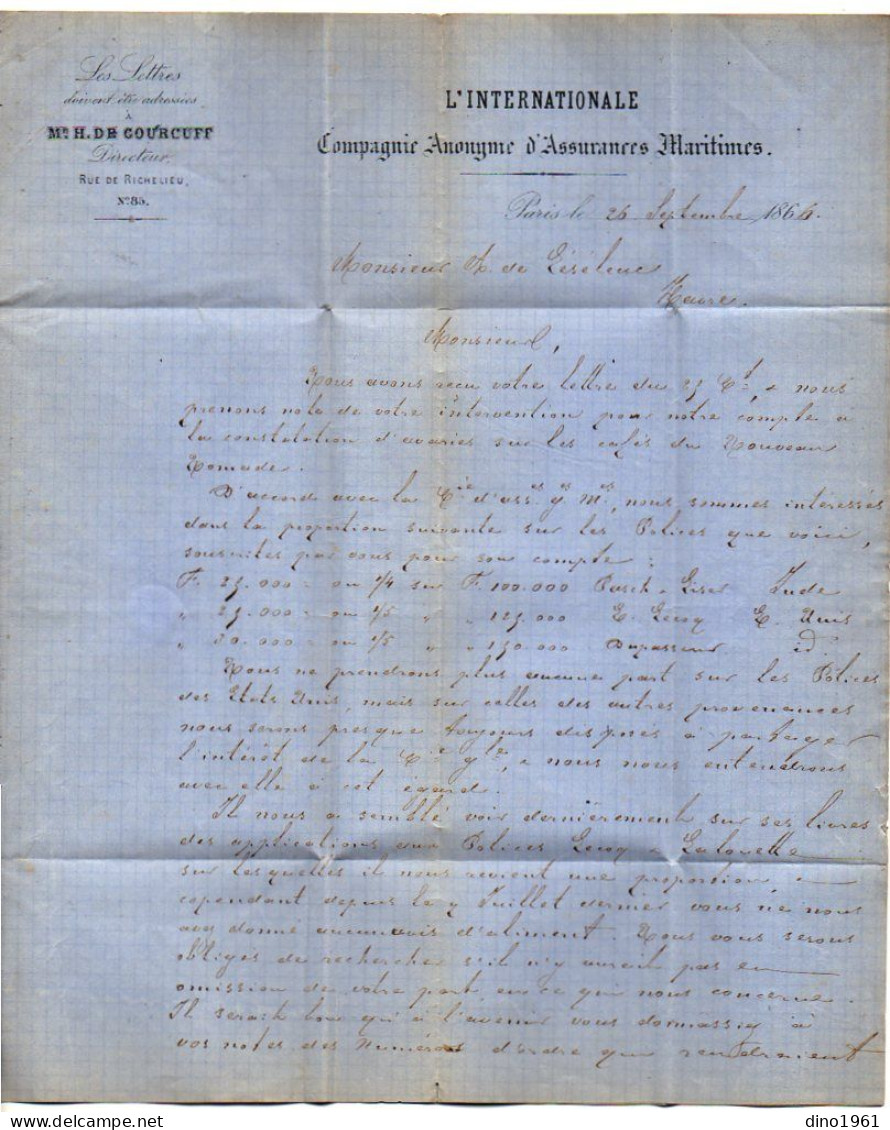 Les Lettres
doivent être adressées
à
Mr. H. DE GOURCUFF
Directeur.
RUE DE RICHELIEU,
No. 85.
L'INTERNATIONALE
Compagnie Anonyme d'Assurances Maritimes.
Paris le 26 Septembre 1866.
Monsieur A. de
Havre.
Monsieur,
Nous avons reçu votre lettre du 25 Ct, & nous
prenons note de votre intervention pour notre compte à
la constatation d'avaries sur les cafés du Nouveau
Nomade.
D'accord avec la Cie d'assces gles Mes, nous sommes intéressés
dans la proportion suivante sur les Polices que voici,
souscrites par vous pour son compte :
F. 25.000 = ou 1/4 sur F. 100.000 Inde
" 25.000 = ou 1/5 " " 125.000 E. Lecoq E. Unis
" 30.000 = ou 1/5 " " 150.000 Dupasseur id
Nous ne prendrons plus aucune part sur les Polices
des Etats Unis, mais sur celles des autres provenances
nous serons presque toujours disposés à partager
l'intérêt de la Cie gle, & nous nous entendrons
avec elle à cet égard.
Il nous a semblé voir dernièrement sur ses livres
des applications aux Polices Lecoq & Lalouette
sur lesquelles il nous revient une proportion, &
cependant depuis le 7 Juillet dernier vous ne nous
avez donné aucun avis d'aliment. Nous vous serons
obligés de rechercher s'il n'y aurait pas eu
omission de votre part, en ce qui nous concerne.
Il serait bon qu'à l'avenir vous donnassiez à
vos notes des Numéros d'ordre que rendraient
dino1961